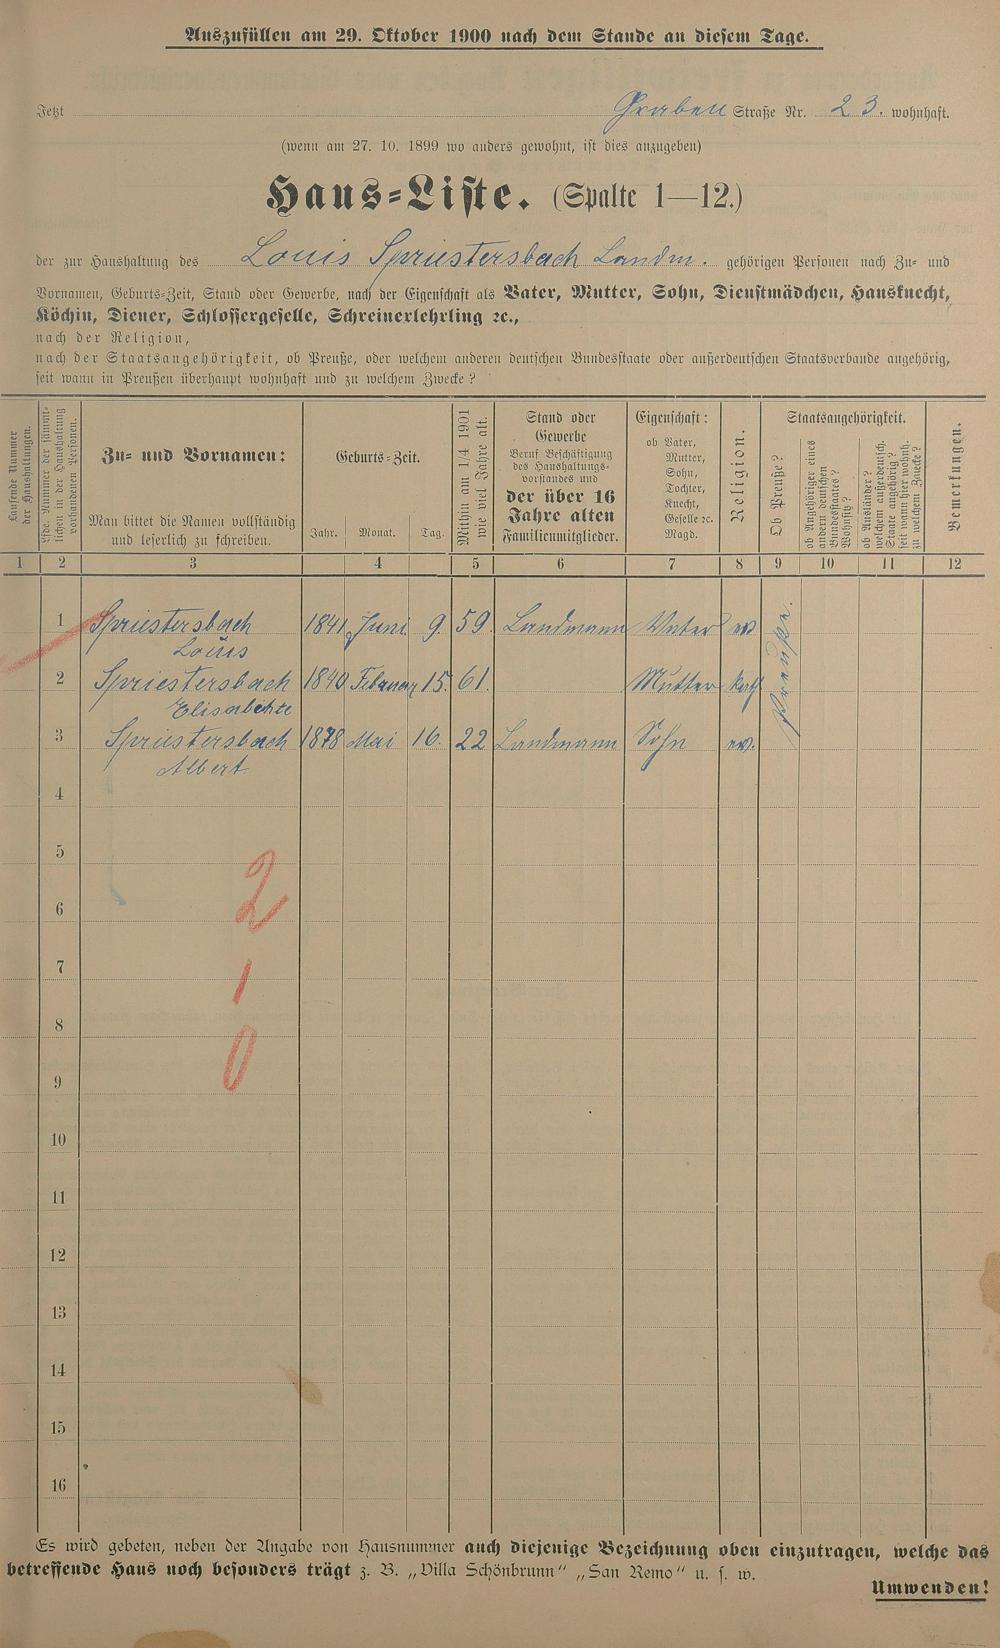 Auszufüllen am 29. Oktober 1900 nach dem Stande an diesem Tage.
Jetzt Graben Straße Nr. 23. wohnhaft.
(wenn am 27. 10. 1899 wo anders gewohnt, ist dies anzugeben)
Haus-Liste. (Spalte 1—12.)
der zur Haushaltung des Louis Spriestersbach Landm. gehörigen Personen nach Zu- und
Vornamen, Geburts-Zeit, Stand oder Gewerbe, nach der Eigenschaft als Vater, Mutter, Sohn, Dienstmädchen, Hausknecht,
Köchin, Diener, Schlossergeselle, Schreinerlehrling ꝛc.,
nach der Religion,
nach der Staatsangehörigkeit, ob Preuße, oder welchem anderen deutschen Bundesstaate oder außerdeutschen Staatsverbande angehörig,
seit wann in Preußen überhaupt wohnhaft und zu welchem Zwecke?
Laufende Nummer
der Haushaltungen.
Lfde. Nummer der sämmt-
lichen in der Haushaltung
vorhandenen Personen.
Zu- und Vornamen:
Man bittet die Namen vollständig
und leserlich zu schreiben.
Geburts-Zeit.
Jahr. Monat. Tag.
Mithin am 1/4 1901
wie viel Jahre alt.
Stand oder
Gewerbe
Beruf Beschäftigung
des Haushaltungs-
vorstandes und
der über 16
Jahre alten
Familienmitglieder.
Eigenschaft:
ob Vater,
Mutter,
Sohn,
Tochter,
Knecht,
Geselle ꝛc.
Magd.
Religion.
Staatsangehörigkeit.
Ob Preuße?
ob Angehöriger eines
andern deutschen
Bundesstaates?
Wohnsitz?
ob Ausländer?
welchem außerdeutsch.
Staate angehörig?
seit wann hier wohnh.
zu welchem Zwecke?
Bemerkungen.
1 2 3 4 5 6 7 8 9 10 11 12
1 Spriestersbach 1841 Juni 9. 59. Landmann Vater ev Preuße.
Louis
2 Spriestersbach 1840 Februar 15. 61. Mutter kath
Elisabethe
3 Spriestersbach 1878 Mai 16. 22 Landmann Sohn ev.
Albert
4
5
2
6
7
1
8
0
9
10
11
12
13
14
15
16
Es wird gebeten, neben der Angabe von Hausnummer auch diejenige Bezeichnung oben einzutragen, welche das
betreffende Haus noch besonders trägt z. B. „Villa Schönbrunn“ „San Remo“ u. s. w.
Umwenden!